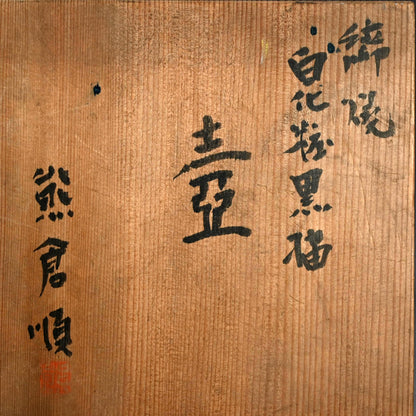 焼
白化粧黒描
壺
熊倉順